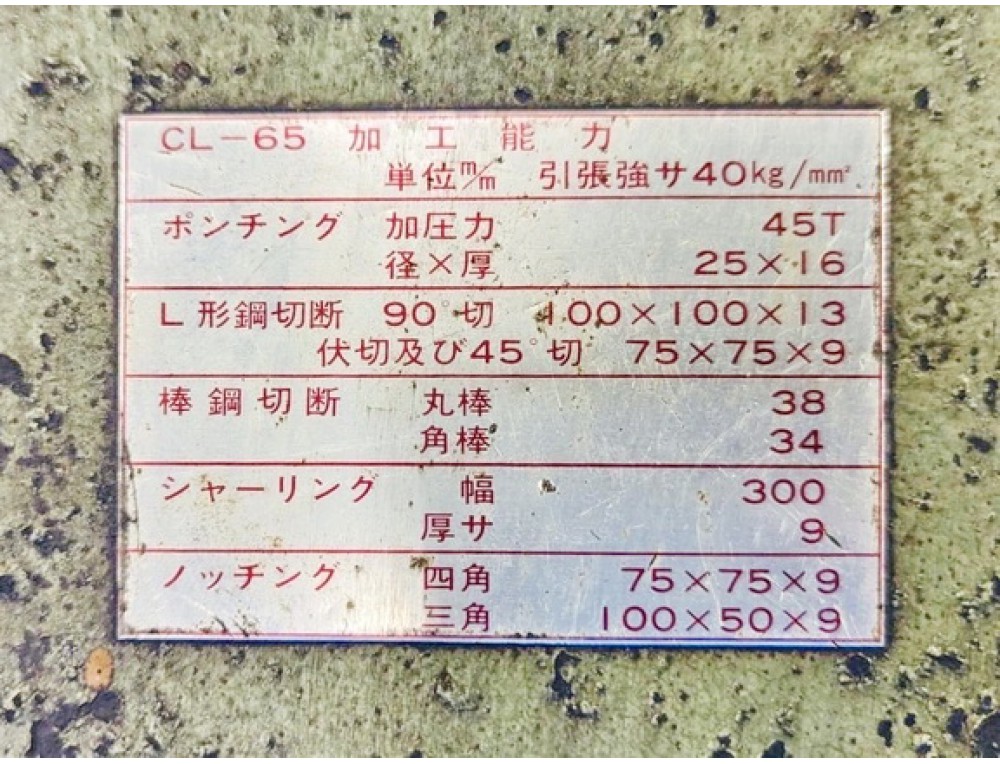 CL-65 加工能力
単位m/m 引張強サ40kg/mm²
ポンチング 加圧力 45T
径×厚 25×16
L形鋼切断 90°切 100×100×13
伏切及び45°切 75×75×9
棒鋼切断 丸棒 38
角棒 34
シャーリング 幅 300
厚サ 9
ノッチング 四角 75×75×9
三角 100×50×9